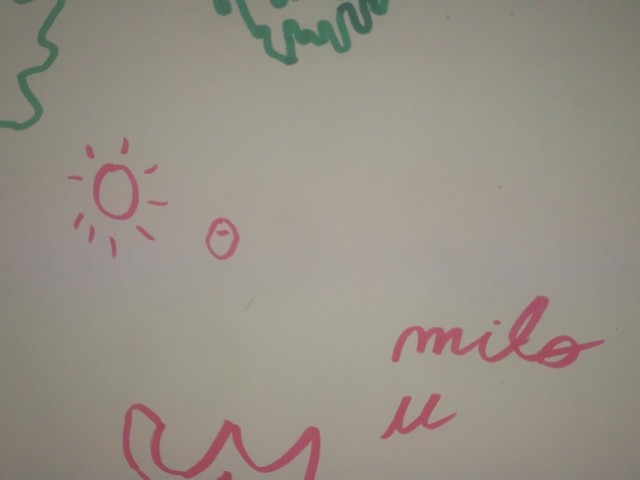 milo
u